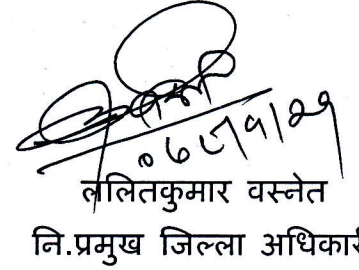 ललितकुमार वस्नेत
नि.प्रमुख जिल्ला अधिकारी